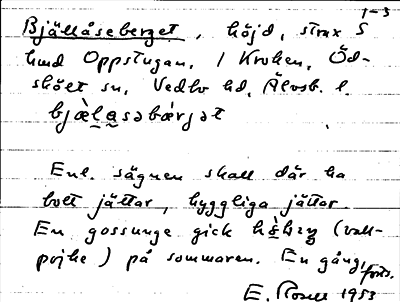 1-3
Bjällåseberget, höjd, strax S
hmd Oppstugan, 1 Kroken, Öd-
sköet sn, Vedbo hd, Älvsb. l.
bjæ̀l̥a̱səbærjət
Enl. sägnen skall där ha
bott jättar, hyggliga jättar.
En gossunge gick (vall-
pojke) på sommaren. En gång,
forts.
E. 1953